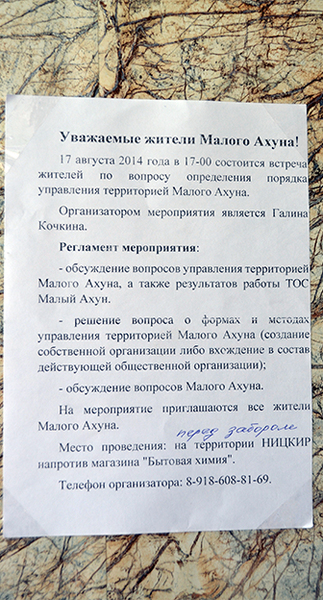 Уважаемые жители Малого Ахуна!
17 августа 2014 года в 17-00 состоится встреча
жителей по вопросу определения порядка
управления территорией Малого Ахуна.
Организатором мероприятия является Галина
Кочкина.
Регламент мероприятия:
- обсуждение вопросов управления территорией
Малого Ахуна, а также результатов работы ТОС
Малый Ахун.
- решение вопроса о формах и методах
управления территорией Малого Ахуна (создание
собственной организации либо вхождение в состав
действующей общественной организации);
- обсуждение вопросов Малого Ахуна.
На мероприятие приглашаются все жители
Малого Ахуна.
перед забором
Место проведения: на территории НИЦКИР
напротив магазина "Бытовая химия".
Телефон организатора: 8-918-608-81-69.